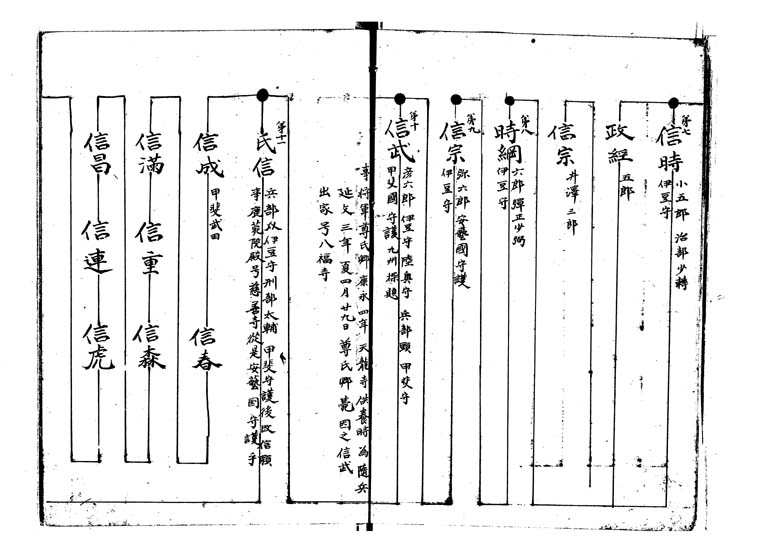 第七
信時
小五郎 治部少輔
伊豆守
政經
五郎
信宗
井澤三郎
第八
時綱
六郎 彈正少弼
伊豆守
第九
信宗
弥六郎 安藝國守護
伊豆守
第十
信武
彦六郎 伊豆守 陸奥守 兵部 甲斐守
甲斐國守護 九州探題
事将軍尊氏卿康永四年天龍寺供養時為随兵
延文三年夏四月廿九日尊氏卿薨因之信武
出家号八福寺
第十一
氏信
兵部 伊豆守刑部太輔 甲斐守護後改信
李 殿号慈 寺從是安藝國守護
信成
甲斐武田
信春
信滿
信重
信森
信昌
信連
信虎